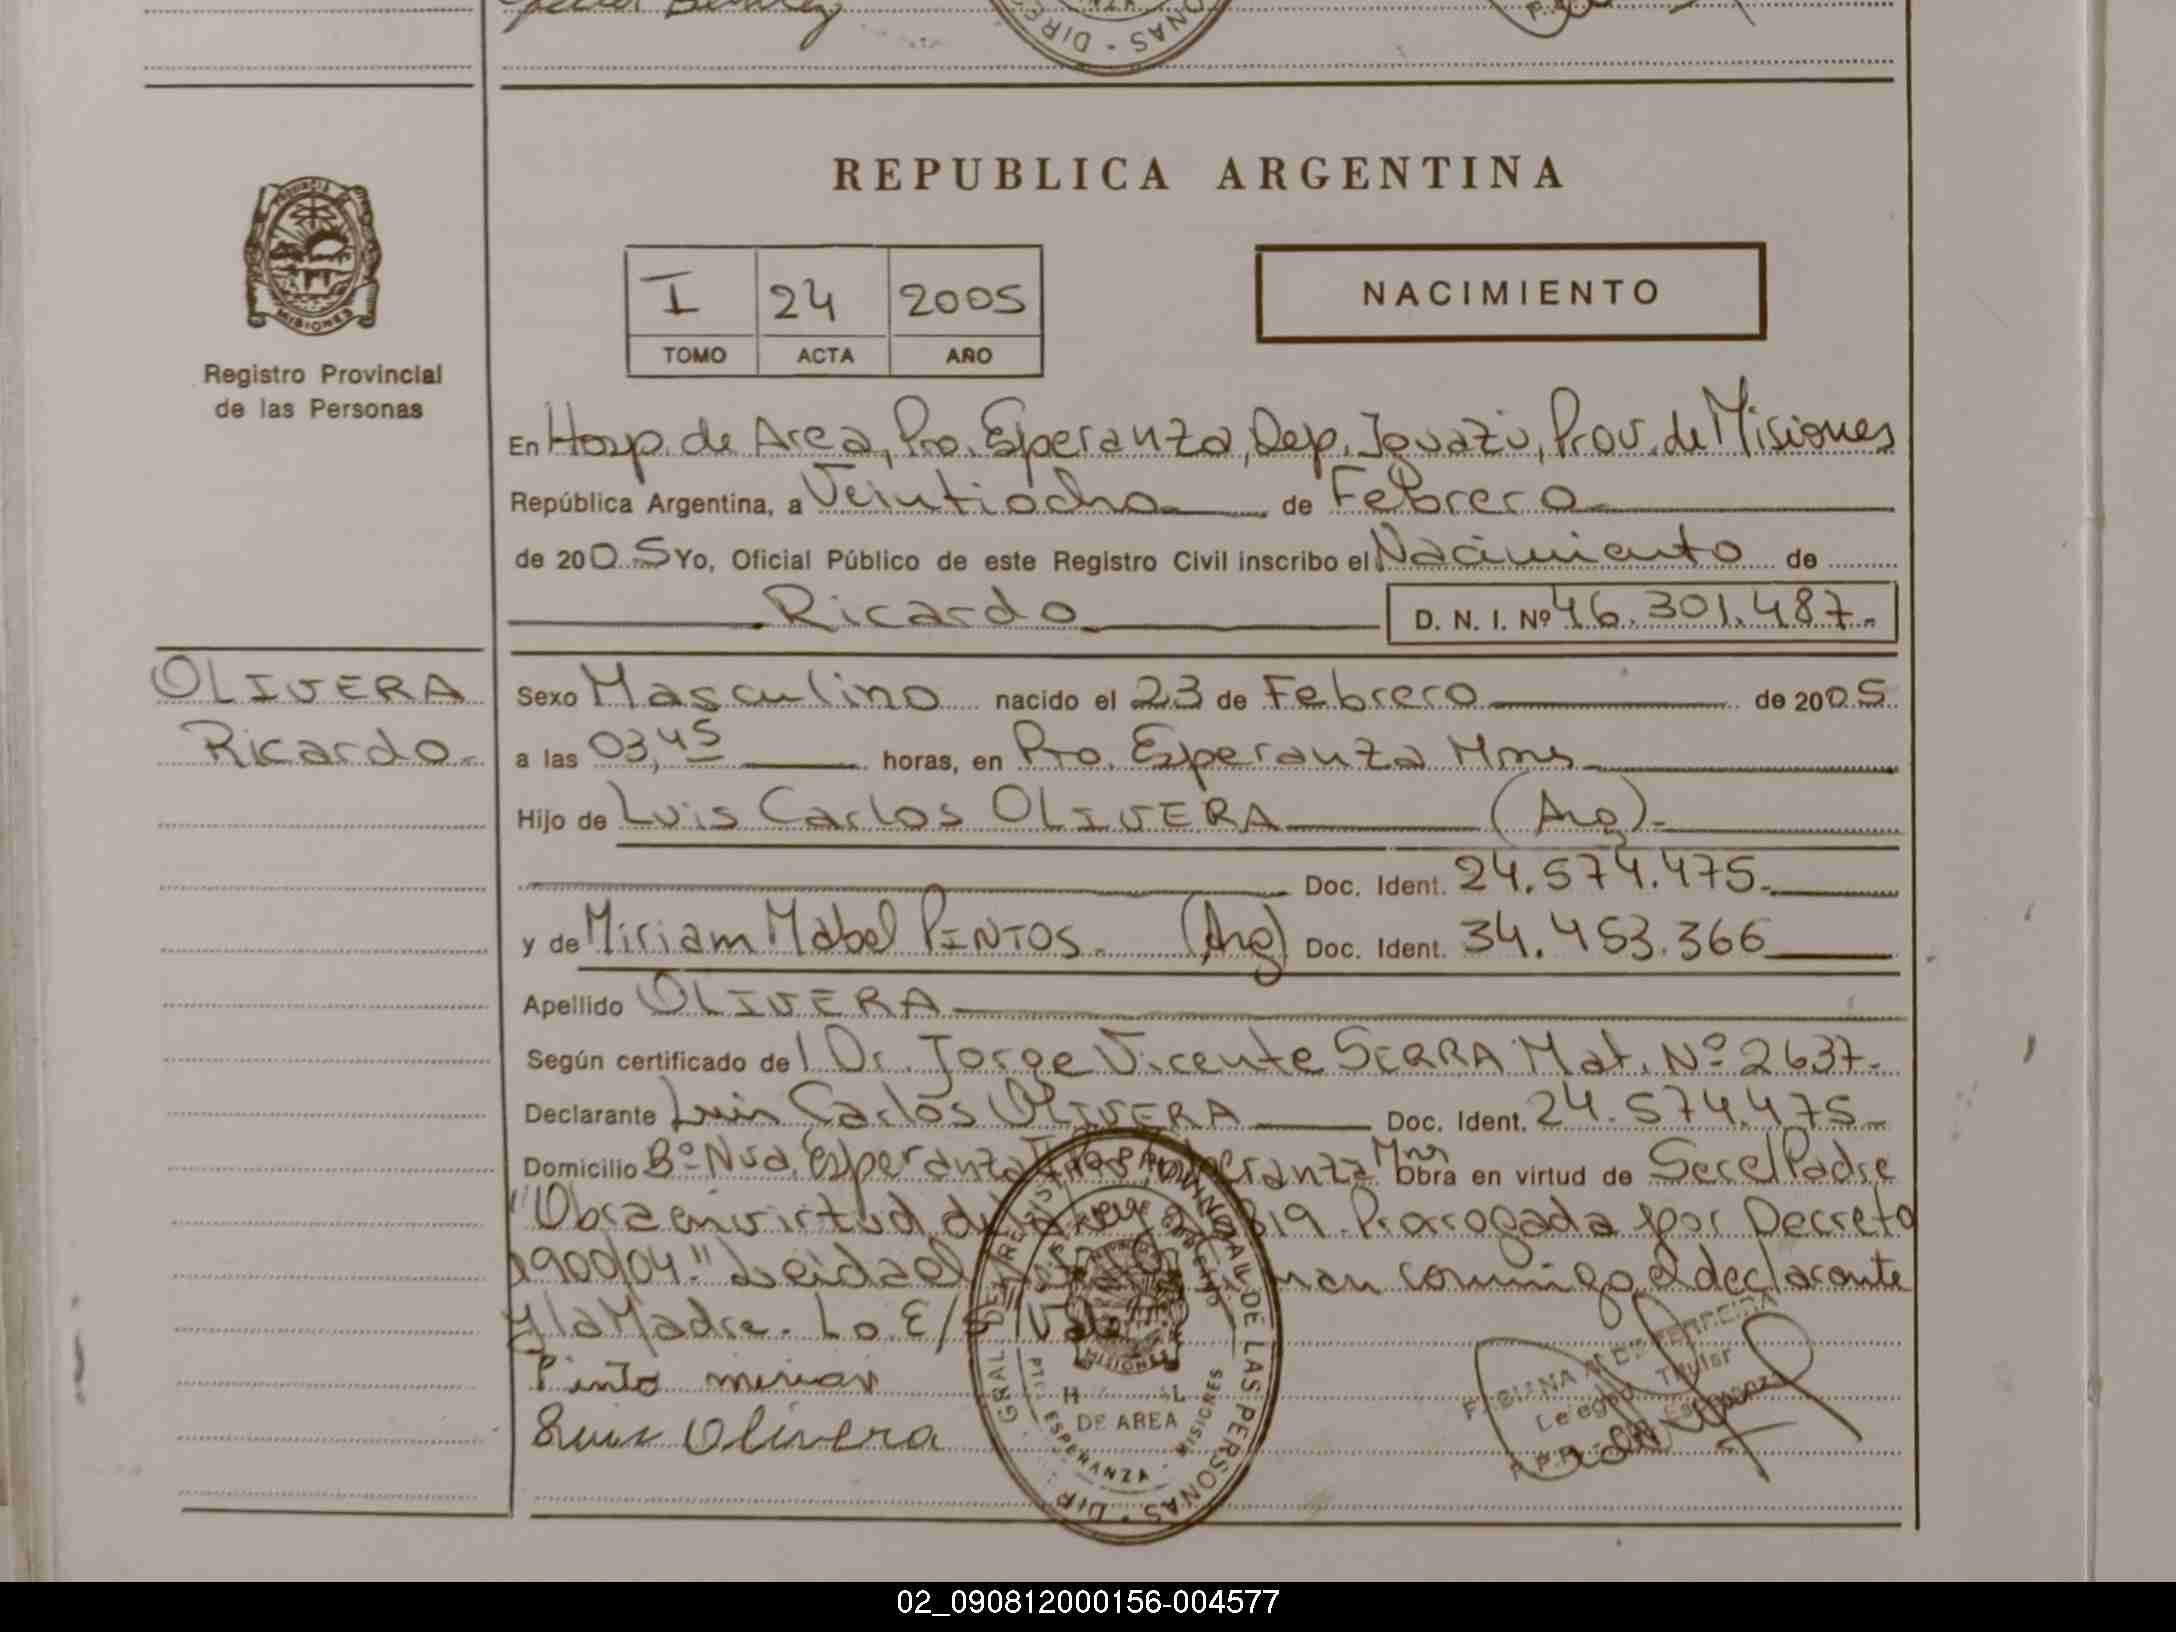 REPUBLICA ARGENTINA
PROVINCIA
MISIONES
Registro Provincial
de las Personas
I 24 2005
TOMO ACTA AÑO
NACIMIENTO
En Hosp. de Area, Pto. Esperanza, Dep. Iguazú, Prov. de Misiones
República Argentina, a Veintiocho de Febrero
de 2005 Yo, Oficial Público de este Registro Civil inscribo el Nacimiento de
Ricardo D. N. I. Nº 46.301.487.-
OLIVERA
Ricardo.-
Sexo Masculino nacido el 23 de Febrero de 2005
a las 03,45 horas, en Pto. Esperanza Mnes
Hijo de Luis Carlos OLIVERA (Arg).-
Doc. Ident. 24.574.475.-
y de Miriam Mabel PINTOS.- (Arg) Doc. Ident. 34.453.366
Apellido OLIVERA
Según certificado del Dr. Jorge Vicente SERRA Mat. Nº 2637.-
Declarante Luis Carlos OLIVERA Doc. Ident. 24.574.475.-
Domicilio Bº Nva. Esperanza Mns obra en virtud de Ser el Padre
"Obra en virtud de la Ley 819. Prorogada por Decreto
1900/04." Leida el conmigo el declarante
y la Madre. Lo E/ Vale
Pinto mirian
Luis Olivera
DE AREA
ESPERANZA - MISIONES
GRAL. DE LAS PERSONAS - DIR.
Titular
02_090812000156-004577